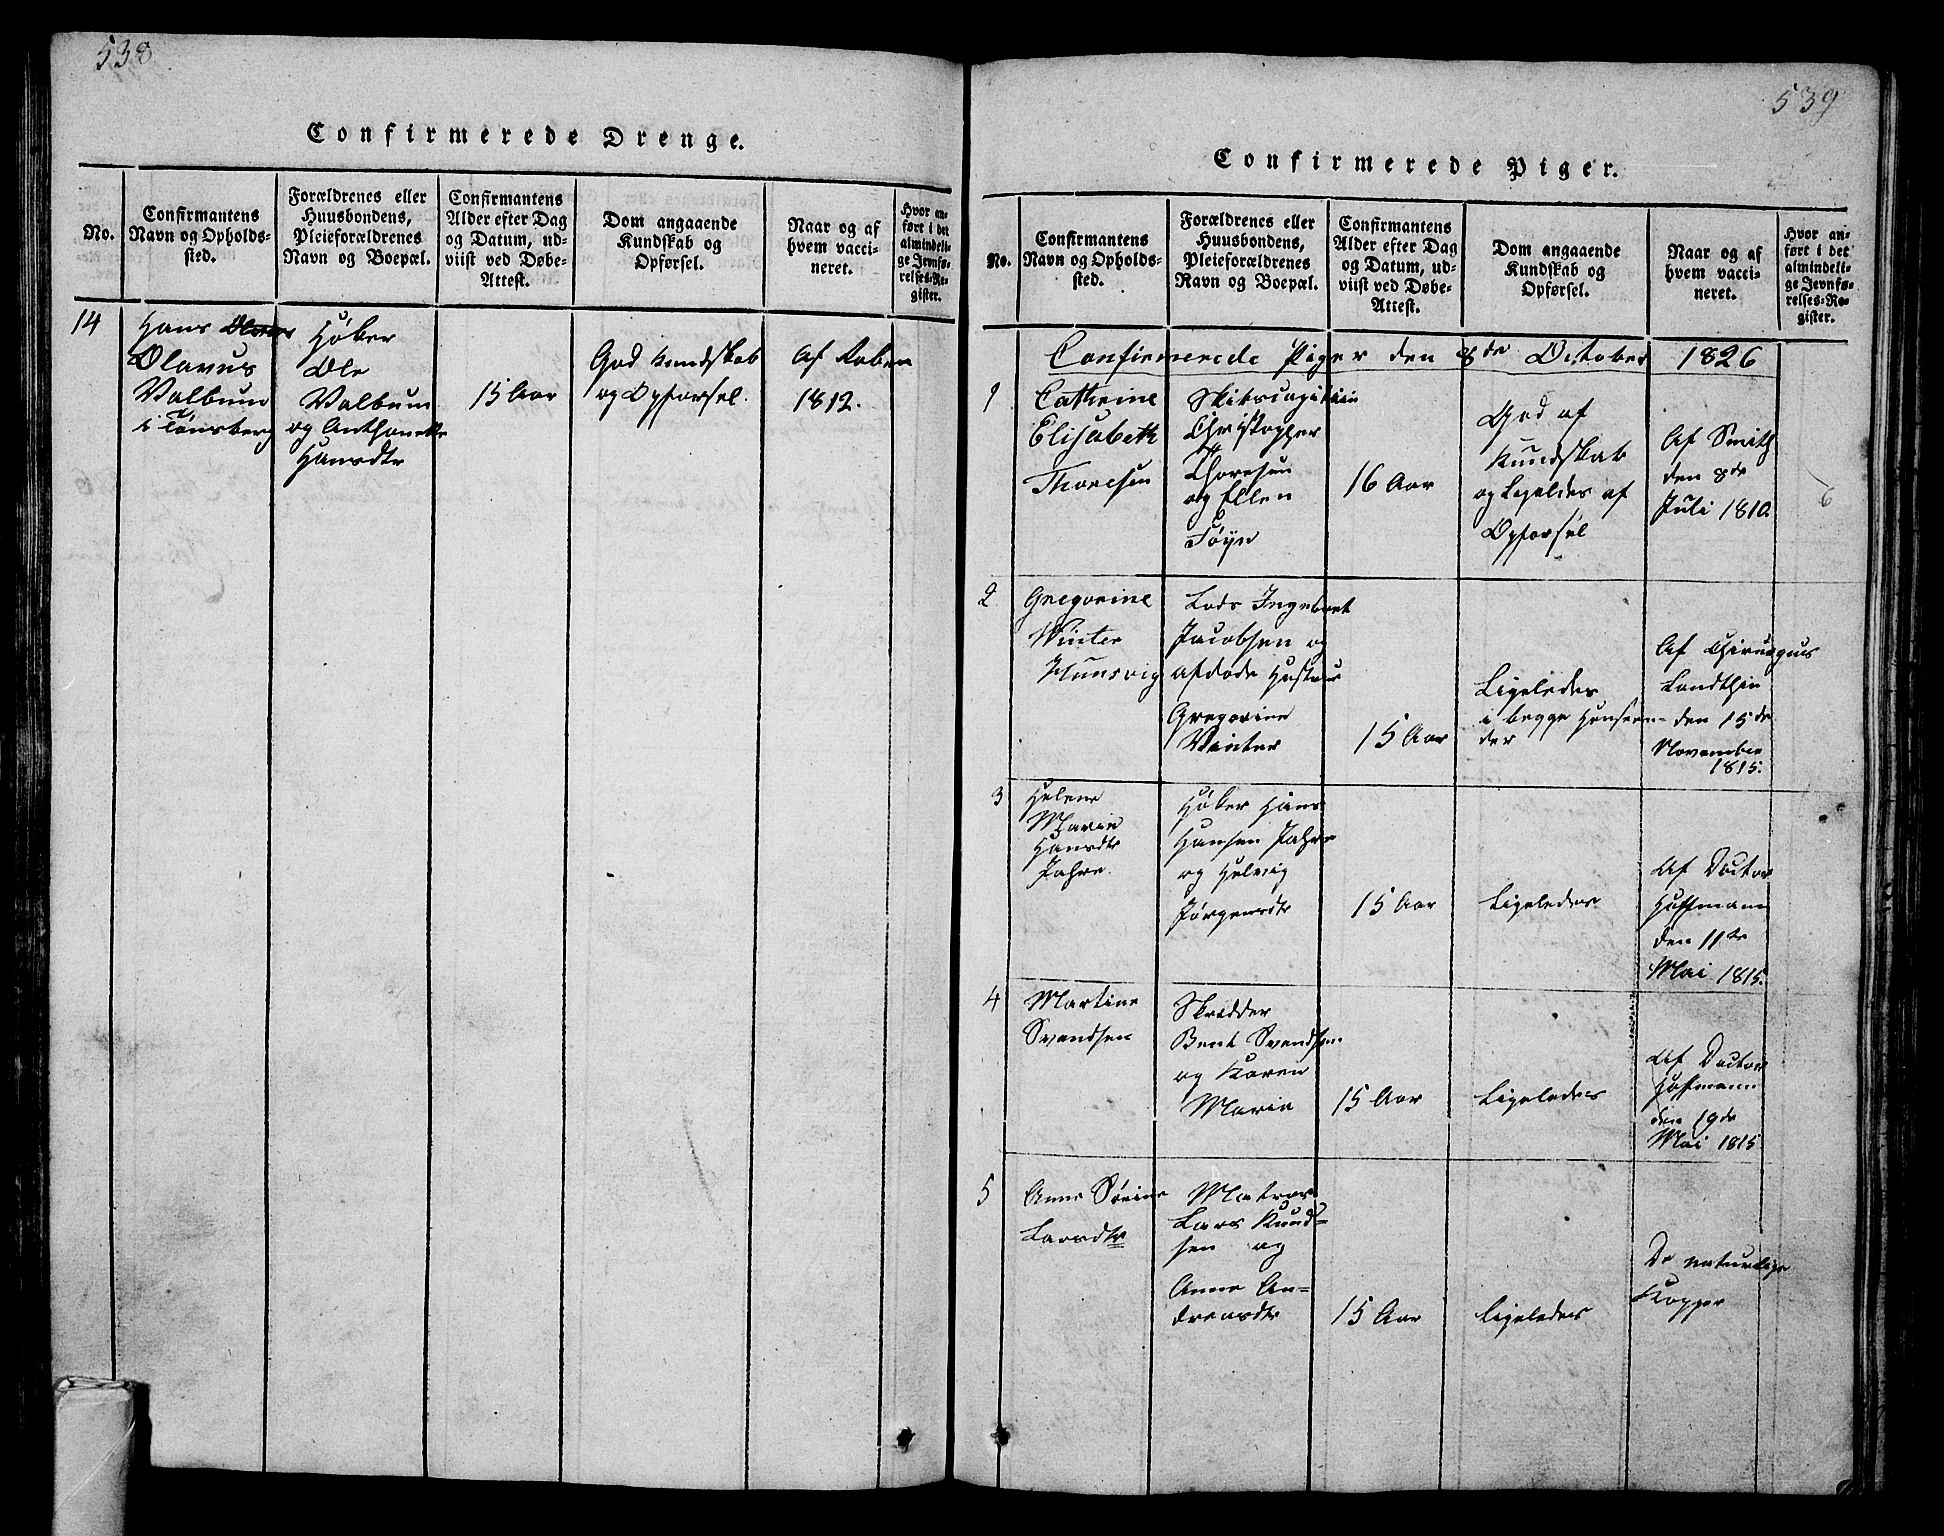 538
Confirmerede Drenge.
No.
Confirmantens
Navn og Opholds-
sted.
Forældrenes eller
Huusbondens,
Pleieforældrenes
Navn og Boepæl.
Confirmantens
Alder efter Dag
og Datum, ud-
viist ved Døbe-
Attest.
Dom angaaende
Kundskab og
Opførsel.
Naar og af
hvem vacci-
neret.
Hvor an-
ført i det
almindeli-
ge Jevnfø-
relses-Re-
gister.
14
Hans
Olavus
Valbum
i Tønsberg
Høker
Ole
Valbum
og Anthonette
Hansdtr
15 Aar
God Kundskab
og Opførsel.
Af Roben
1812.
539
Confirmerede Piger.
No.
Confirmantens
Navn og Opholds-
sted.
Forældrenes eller
Huusbondens,
Pleieforældrenes
Navn og Boepæl.
Confirmantens
Alder efter Dag
og Datum, ud-
viist ved Døbe-
Attest.
Dom angaaende
Kundskab og
Opførsel.
Naar og af
hvem vacci-
neret.
Hvor an-
ført i det
almindeli-
ge Jevnfø-
relses-Re-
gister.
Confirmerede Piger den 8de October 1826
1
Cathrine
Elisabeth
Thoresen
Skibscapitain
Christopher
Thoresen
og Ellen
Føyn
16 Aar
God af
Kundskab
og Ligeledes af
Opførsel
Af Smith
den 8de
Juli 1810.
6
2
Gregorine
Winter
Hunsvig
Lods Ingebret
Jacobsen og
afdøde Hustrue
Gregorine
Winter
15 Aar
Ligeledes
i begge Henseen-
der
Af Chirurgus
Landthin
den 15de
November
1815.
3
Helene
Marie
Hansdtr
Jahre.
Høker Hans
Hansen Jahre
og Helvig
Jørgensdtr
15 Aar
Ligeledes
Af Doctor
Hoffmann
den 11te
Mai 1815.
4
Martine
Svendsen
Skrædder
Bent Svendsen
og Karen
Marie
15 Aar
Ligeledes
Af Doctor
Hoffmann
den 19de
Mai 1815
5
Anne Sørine
Larsdtr
Matros
Lars Knud-
sen og
Anne An-
dreasdtr
15 Aar
Ligeledes
De naturlige
Kopper